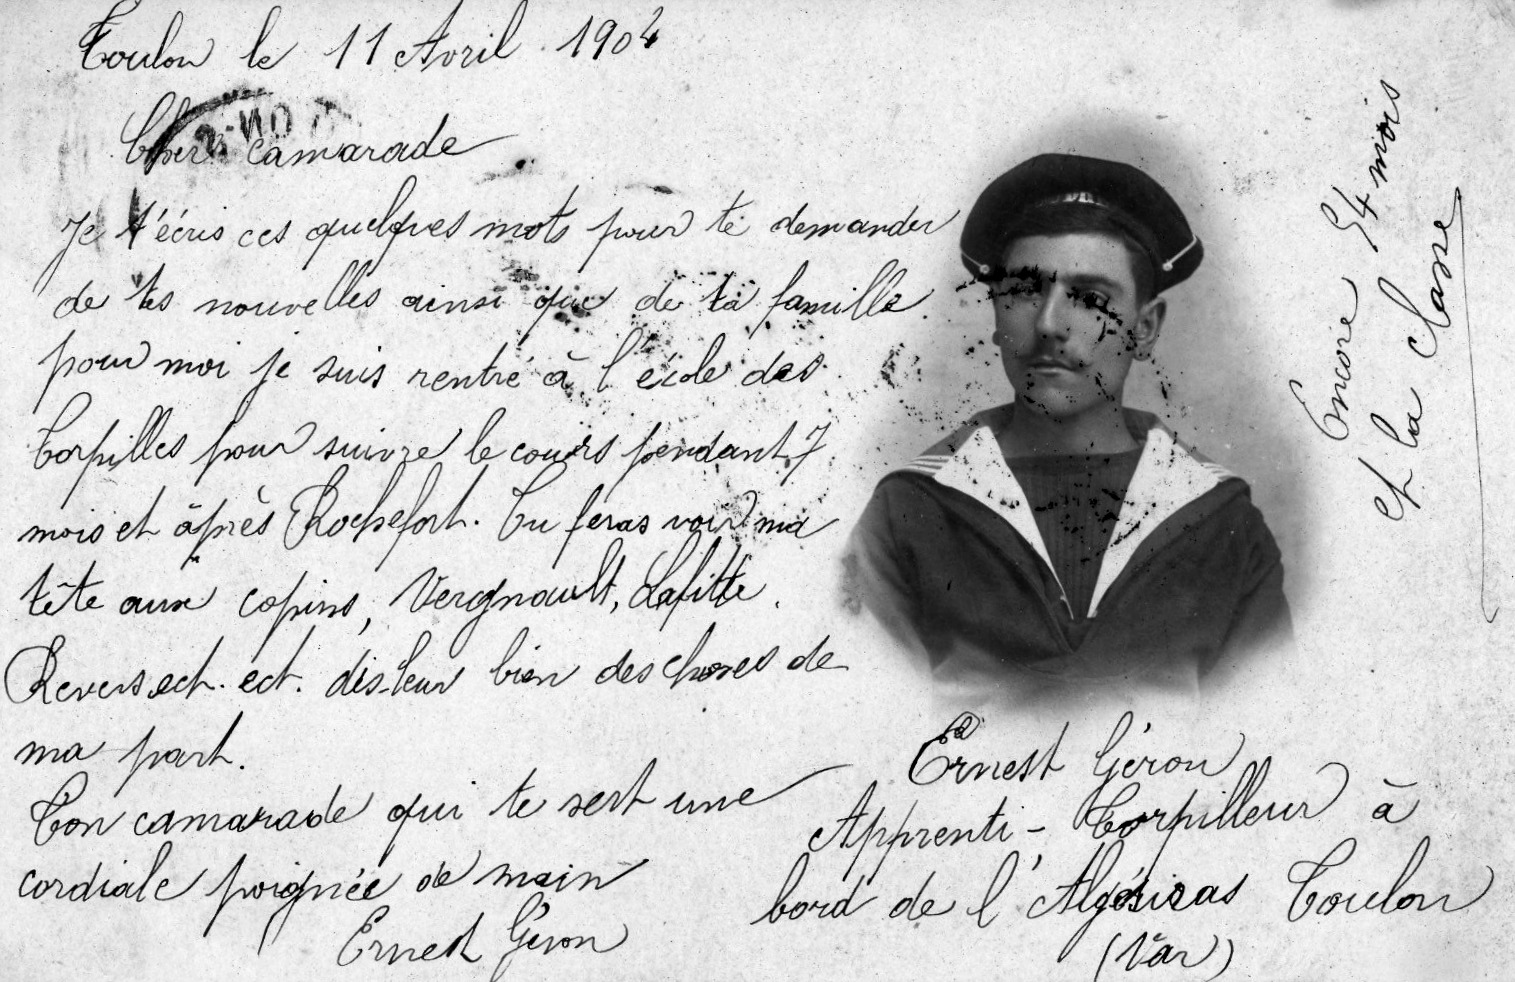 Toulon le 11 Avril 1904
Cher camarade
Je t'écris ces quelques mots pour te demander
de tes nouvelles ainsi que de ta famille
pour moi je suis rentré à l'école des
Torpilles pour suivre le cours pendant 7
mois et âprès Rochefort. Tu feras voir ma
tête aux copins, Vergnault, Lafitte.
Revers ect. ect. dis-leur bien des choses de
ma part.
Ton camarade qui te sert une
cordiale poignée de main
Ernest Géron
Ernest Géron
Apprenti-Torpilleur à
bord de l'Algésiras Toulon
(Var)
Encore 54 mois
et la classe